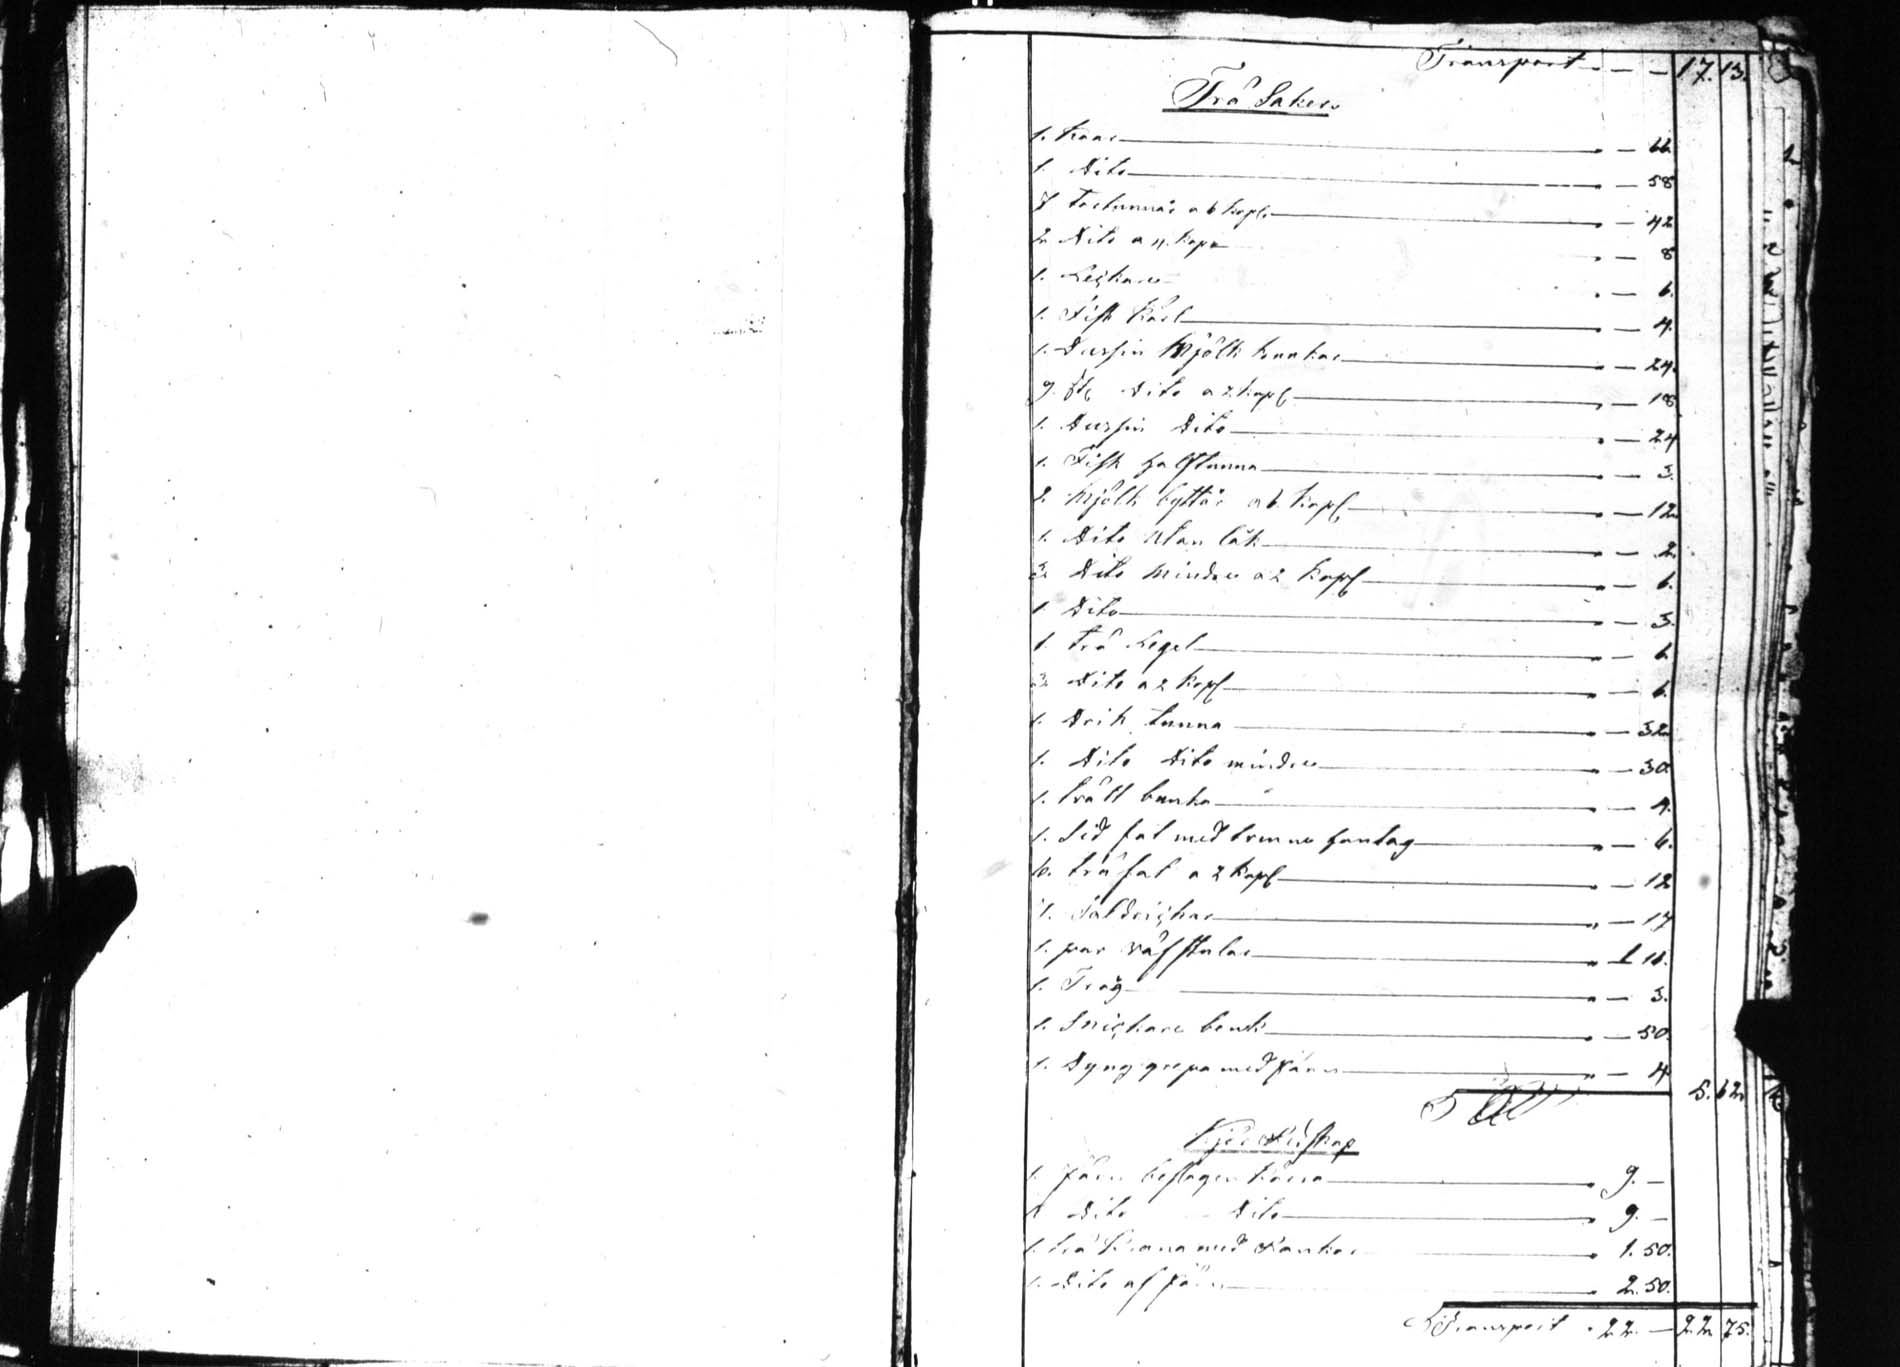 Transport — — 17. 13.
Trä Saker
1. kaar — 66.
1. Dito — 58
7. tortunnor a 6 kop — 42
2. Dito a 4. kop — 8
1. — 6.
1. Fisk kärl — 4.
1. Dussin Mjölk bunkar — 24.
9. st Dito a 2 kop — 18
1. Dussin Dito — 24
1. Fisk halftunna — 3.
2. Mjölk byttor a 6. kop — 12
1. Dito utan låk — 2
3. Dito mindre a 2 kop — 6.
1. Dito — 3.
1. trä — 6
3. Dito a 2 kop — 6.
1. Drik tunna — 32
1. Dito Dito mindre — 30.
1. tvätt bunka — 4.
1. Sid fat med trenne hantag — 6.
6. träfat a 2 kop — 12
— 17
1. par väfstolar — 1 16.
1. Trog — 3.
1. Snickare benk — 50.
1. Dyng grepa med järn — 4
5. 62
Kjör Redskap
1. järn beslagen kärra — 9. —
1 Dito Dito — 9. —
1. trä med — 1. 50.
1. Dito af järn — 2. 50.
Transport 22. — 22 75.